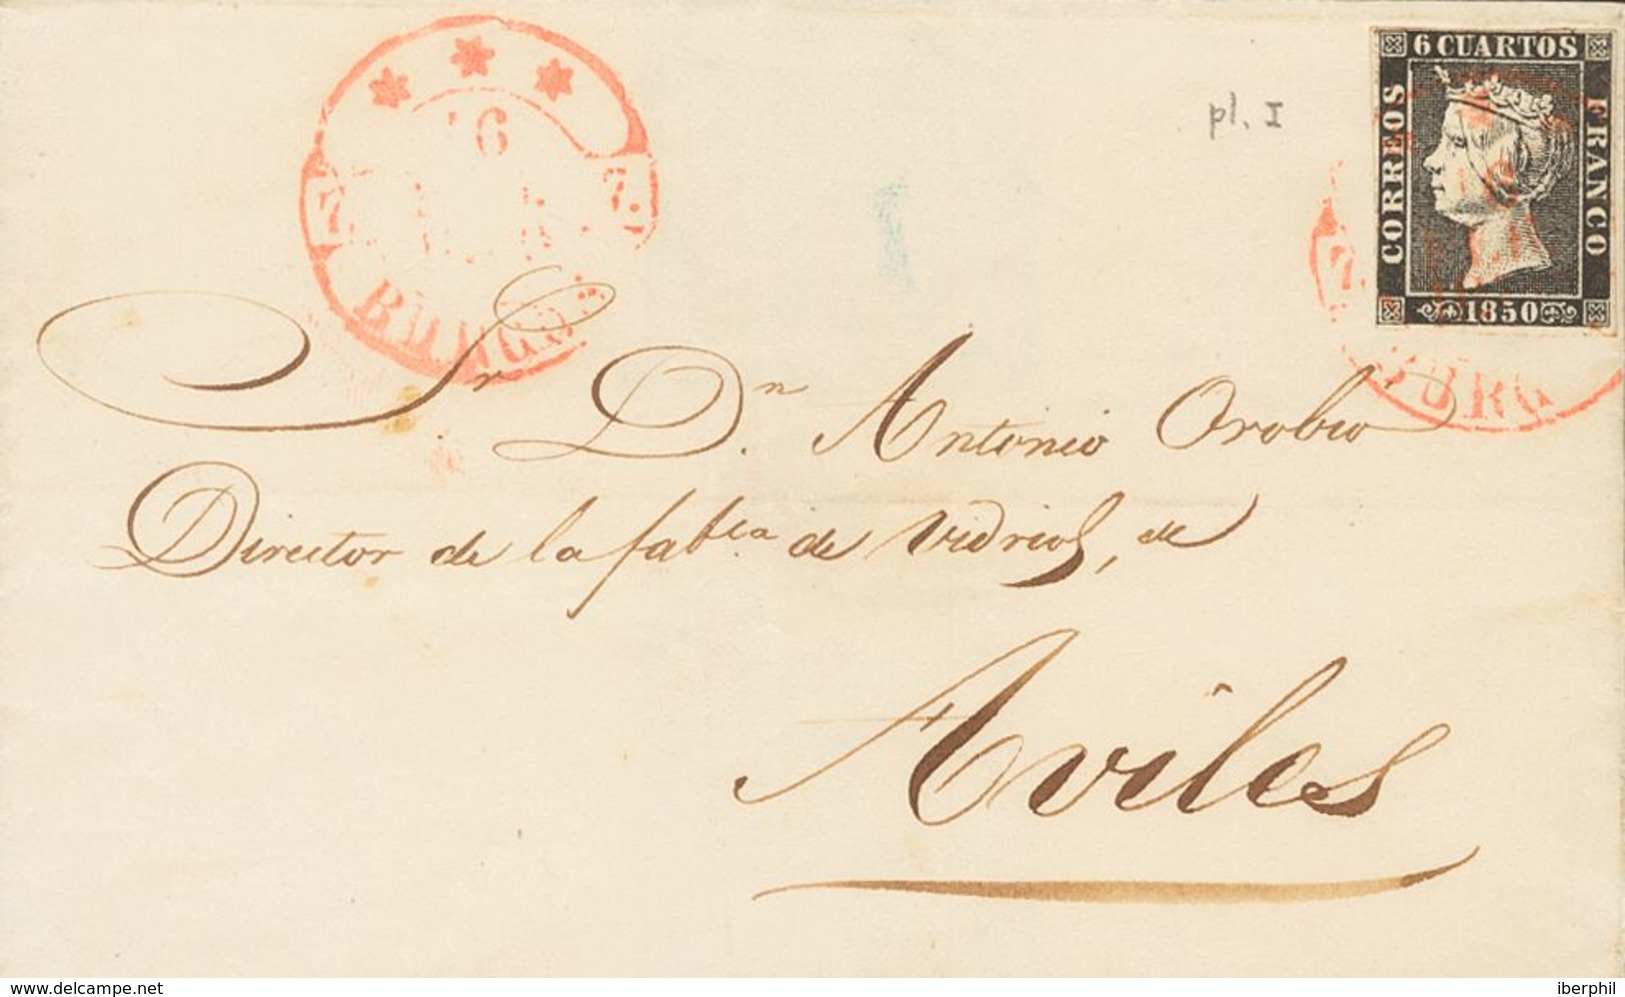 6 CUARTOS
CORREOS
FRANCO
1850
pl. I
6
BURGOS
BURG
Sr. Dn. Antonio Orobio
Director de la fabca de vidrios, de
Aviles
www.delcampe.net
iberphil